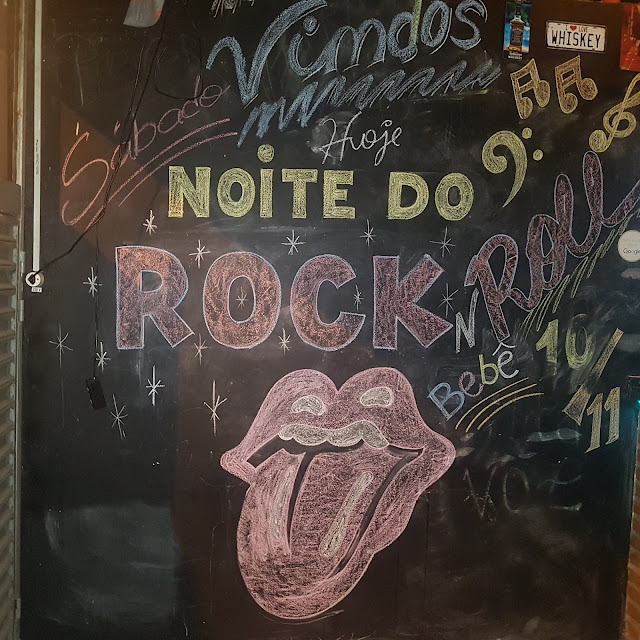 Vindos
WHISKEY
Sábado
Hoje
NOITE DO
ROCK N Roll
Google
Bebê
10/11